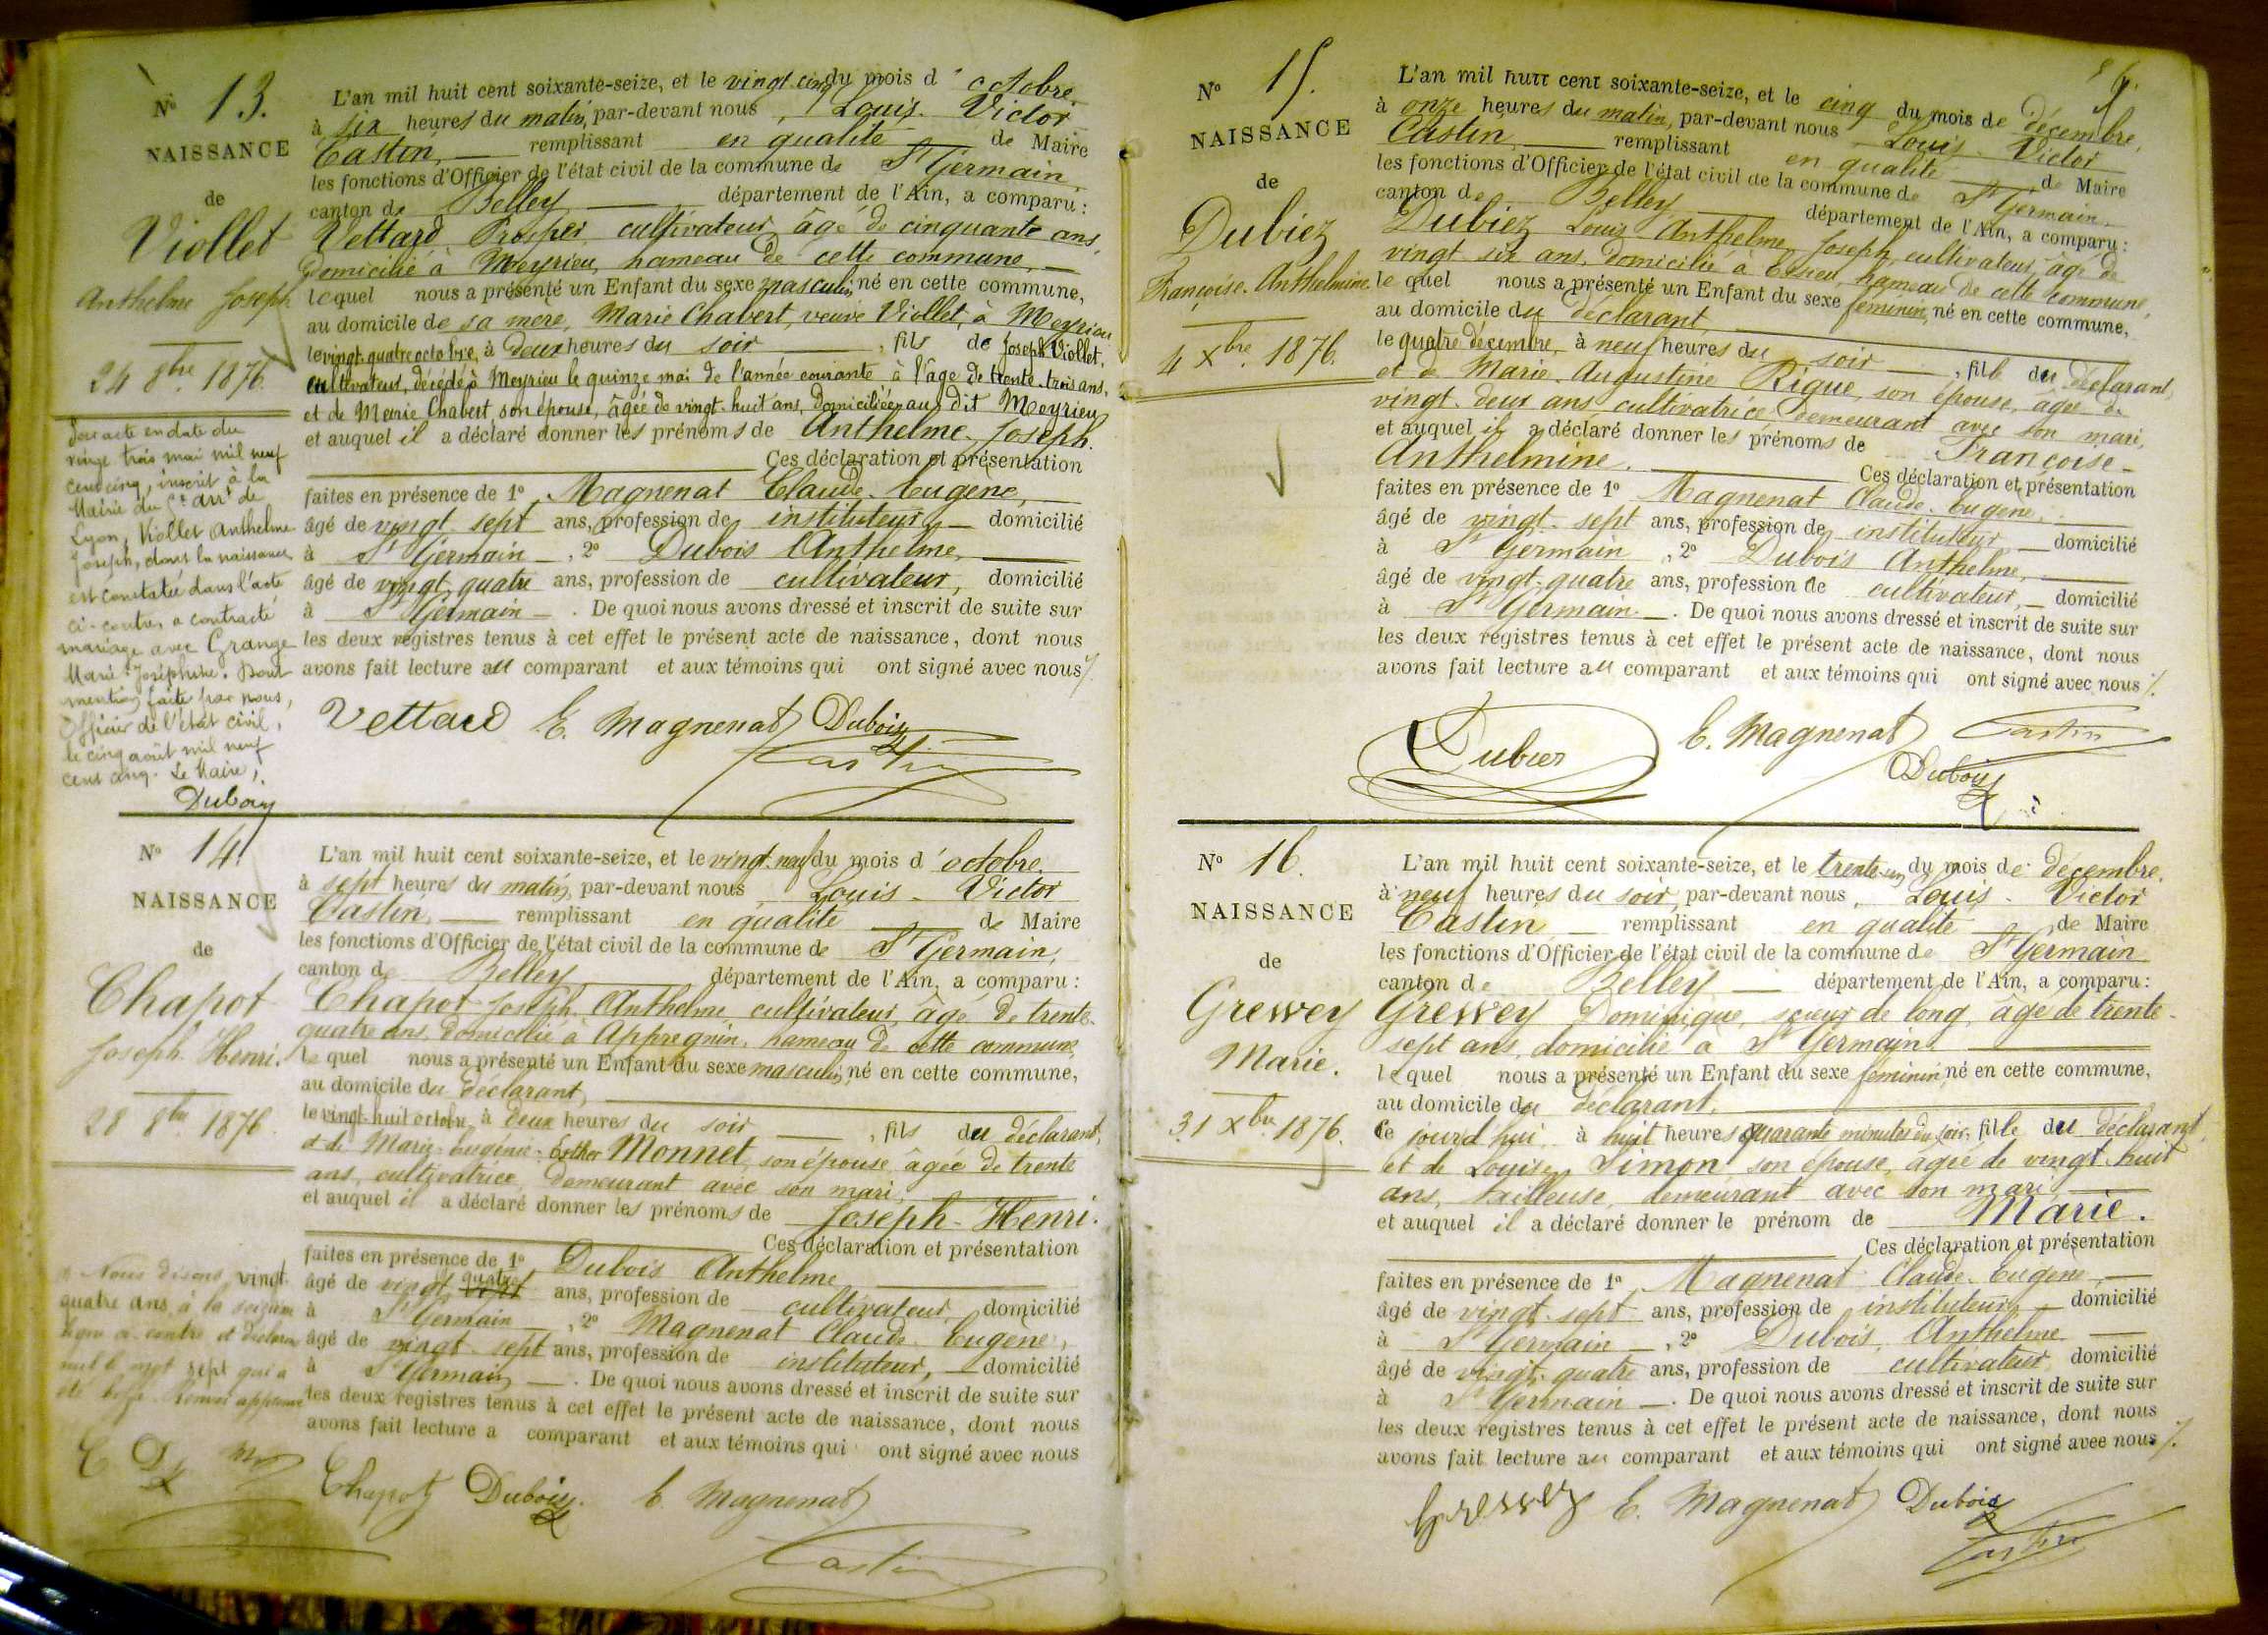 N° 13.
NAISSANCE
de
Viollet
Anthelme Joseph
24 8bre 1876.
Par acte en date du
vingt trois mai mil neuf
cent cinq, inscrit à la
Mairie du arrt de
Lyon, Viollet Anthelme
Joseph, dont la naissance
est constatée dans l'acte
ci-contre, a contracté
mariage avec Grange
Marie Joséphine. Dont
mention faite par nous,
Officier de l'état civil,
le cinq août mil neuf
cent cinq. Le Maire,
Dubois
L'an mil huit cent soixante-seize, et le vingt cinq du mois d'octobre
à six heures du matin, par-devant nous, Louis-Victor
Castin, remplissant en qualité de Maire
les fonctions d'Officier de l'état civil de la commune de St Germain,
canton de Belley département de l'Ain, a comparu :
Vettard Prosper cultivateur, âgé de cinquante ans,
domicilié à Meyrieu, hameau de cette commune,
lequel nous a présenté un Enfant du sexe masculin, né en cette commune,
au domicile de sa mère, Marie Chabert, veuve Viollet, à Meyrieu
le vingt-quatre octobre, à deux heures du soir, fils de Joseph Viollet,
cultivateur, décédé à Meyrieu le quinze mai de l'année courante à l'âge de trente-trois ans,
et de Marie Chabert, son épouse, âgée de vingt-huit ans, domiciliée au dit Meyrieu
et auquel il a déclaré donner les prénoms de Anthelme-Joseph.
Ces déclaration et présentation
faites en présence de 1° Magnenat Claude-Eugène,
âgé de vingt-sept ans, profession de instituteur, domicilié
à St Germain, 2° Dubois Anthelme,
âgé de vingt-quatre ans, profession de cultivateur, domicilié
à St Germain. De quoi nous avons dressé et inscrit de suite sur
les deux registres tenus à cet effet le présent acte de naissance, dont nous
avons fait lecture au comparant et aux témoins qui ont signé avec nous
Vettard E. Magnenat Dubois
Castin
N° 14.
NAISSANCE
de
Chapot
Joseph Henri.
28 8bre 1876
Nous disons vingt-
quatre ans à la seizième
ligne ci-contre et déclarons
nul le mot sept qui a
été biffé.
L'an mil huit cent soixante-seize, et le vingt-neuf du mois d'octobre
à sept heures du matin, par-devant nous Louis-Victor
Castin, remplissant en qualité de Maire
les fonctions d'Officier de l'état civil de la commune de St Germain,
canton de Belley département de l'Ain, a comparu :
Chapot Joseph Anthelme cultivateur, âgé de trente-
quatre ans, domicilié à Appregnin, hameau de cette commune,
lequel nous a présenté un Enfant du sexe masculin, né en cette commune,
au domicile du déclarant,
le vingt-huit octobre à deux heures du soir, fils du déclarant,
et de Marie-Eugénie-Esther Monnet, son épouse, âgée de trente
ans, cultivatrice, demeurant avec son mari
et auquel il a déclaré donner les prénoms de Joseph-Henri.
Ces déclaration et présentation
faites en présence de 1° Dubois Anthelme
âgé de vingt sept quatre ans, profession de cultivateur, domicilié
à St Germain, 2° Magnenat Claude-Eugène,
âgé de vingt-sept ans, profession de instituteur, domicilié
à St Germain. De quoi nous avons dressé et inscrit de suite sur
les deux registres tenus à cet effet le présent acte de naissance, dont nous
avons fait lecture a comparant et aux témoins qui ont signé avec nous
Chapot Dubois. E. Magnenat
Castin
N° 15.
NAISSANCE
de
Dubiez
Françoise-Anthelmine.
4 Xbre 1876.
L'an mil huit cent soixante-seize, et le cinq du mois de décembre,
à onze heures du matin, par-devant nous Louis-Victor
Castin, remplissant en qualité de Maire
les fonctions d'Officier de l'état civil de la commune de St Germain,
canton de Belley département de l'Ain, a comparu :
Dubiez Louis-Anthelme-Joseph, cultivateur, âgé de
vingt six ans, domicilié à Essieu, hameau de cette commune,
lequel nous a présenté un Enfant du sexe féminin, né en cette commune,
au domicile du déclarant,
le quatre décembre, à neuf heures du soir, fille du déclarant,
et de Marie-Augustine Rique, son épouse, âgée de
vingt-deux ans, cultivatrice, demeurant avec son mari,
et auquel il a déclaré donner les prénoms de Françoise-
Anthelmine. Ces déclaration et présentation
faites en présence de 1° Magnenat Claude-Eugène,
âgé de vingt-sept ans, profession de instituteur, domicilié
à St Germain, 2° Dubois Anthelme,
âgé de vingt-quatre ans, profession de cultivateur, domicilié
à St Germain. De quoi nous avons dressé et inscrit de suite sur
les deux registres tenus à cet effet le présent acte de naissance, dont nous
avons fait lecture au comparant et aux témoins qui ont signé avec nous
Dubiez E. Magnenat Castin
Dubois
N° 16.
NAISSANCE
de
Grewey
Marie.
31 Xbre 1876.
L'an mil huit cent soixante-seize, et le trente-un du mois de décembre,
à neuf heures du soir, par-devant nous, Louis-Victor
Castin, remplissant en qualité de Maire
les fonctions d'Officier de l'état civil de la commune de St Germain
canton de Belley département de l'Ain, a comparu :
Grewey Dominique, scieur de long, âgé de trente-
sept ans, domicilié à St Germain.
lequel nous a présenté un Enfant du sexe féminin, né en cette commune,
au domicile du déclarant,
ce jourd'hui à huit heures quarante minutes du soir, fille du déclarant,
et de Louise Simon son épouse, âgée de vingt-huit
ans, tailleuse, demeurant avec son mari
et auquel il a déclaré donner le prénom de Marie.
Ces déclaration et présentation
faites en présence de 1° Magnenat Claude-Eugène,
âgé de vingt-sept ans, profession de instituteur, domicilié
à St Germain, 2° Dubois, Anthelme
âgé de vingt-quatre ans, profession de cultivateur domicilié
à St Germain. De quoi nous avons dressé et inscrit de suite sur
les deux registres tenus à cet effet le présent acte de naissance, dont nous
avons fait lecture au comparant et aux témoins qui ont signé avec nous
Grewey E. Magnenat Dubois
Castin